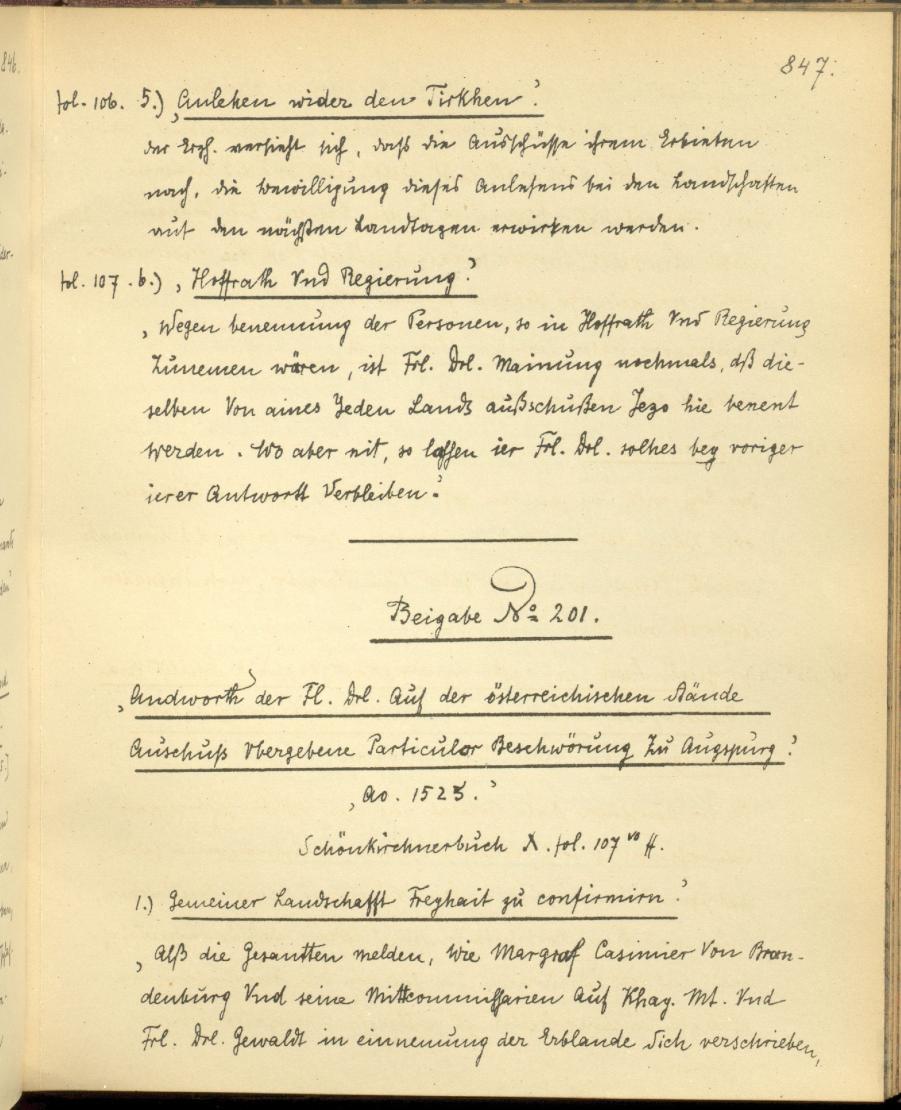 847.
fol. 106. 5.) „Anlehen wider den Tirkhen“.
der Erzh. versieht sich, daß die Ausschüsse ihrem Erbieten
nach, die Bewilligung dieses Anlehens bei den Landschaften
auf den nächsten Landtagen erwirken werden.
fol. 107. 6.) „Hoffrath Vnd Regierung“.
„Wegen benennung der Personen, so in Hoffrath Vnd Regierung
Zunemen wären, ist Frl. Drl. Mainung nochmals, dß die-
selben Von aines Jeden Landß außschußen Jezo hie benent
werden. Wo aber nit, so lassen ier Frl. Drl. solhes bey voriger
ierer Antwortt Verbleiben“.
Beigabe No 201.
„Andworth der Fl. Drl. Auf der österreichischen Stände
Auschuß Vbergebene Particular Beschwörung Zu Augspurg“.
„Ao. 1525.“
Schönkirchnerbuch X. fol. 107 vo ff.
1.) Gemeiner Landschafft Freyhait zu confirmirn“.
„Alß die Gesantten melden, Wie Margraf Casimier Von Bran-
denburg Vnd seine Mittcommissarien Auf Khay. Mt. Vnd
Frl. Drl. Gewaldt in einnemung der Erblande Sich verschrieben,